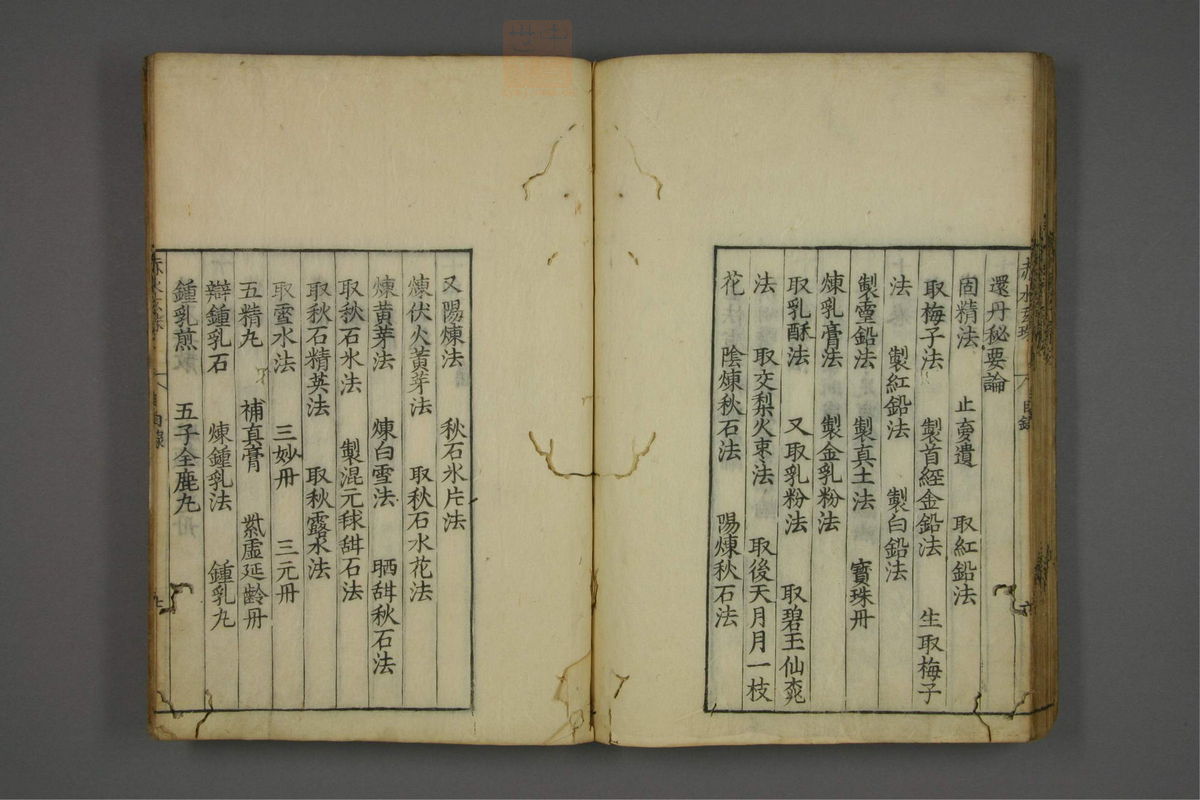 還丹秘要論
固精法 止夌遺 取紅鉛法
取梅子法 製首經金鉛法 生取梅子
法 製紅鉛法 製白鉛法
製靈鉛法 製真土法 寶珠丹
煉乳膏法 製金乳粉法
取乳酥法 又取乳粉法 取碧玉仙桃
法 取交梨火棗法 取後天月月一枝
花 陰煉秋石法 陽煉秋石法
又陽煉法 秋石氷片法
煉伏火黃芽法 取秋石水花法
煉黃芽法 煉白雪法 晒甜秋石法
取秋石氷法 製混元毬甜石法
取秋石精英法 取秋露水法
取雪水法 三妙丹 三元丹
五精丸 補真膏 紫虛延齡丹
辯鍾乳石 煉鍾乳法 鍾乳丸
鍾乳煎 五子全鹿丸